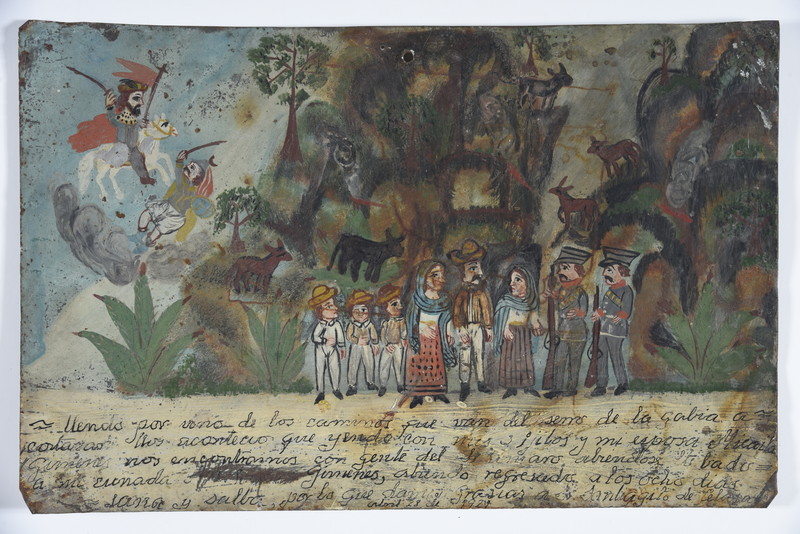 ~ Llendo por vno de los caminos que van del serro de la gabia a ~
cortazar Nos acontecio que yendo con mis 3 fijos y mi esposa Micaila
Gimenes nos encontramos con gente del abiendose llebado =
a mi cunada Gimenes, abiendo regresado a los ocho dias
= sana y salba, por lo que doy grasias a Santiaguito de
abril